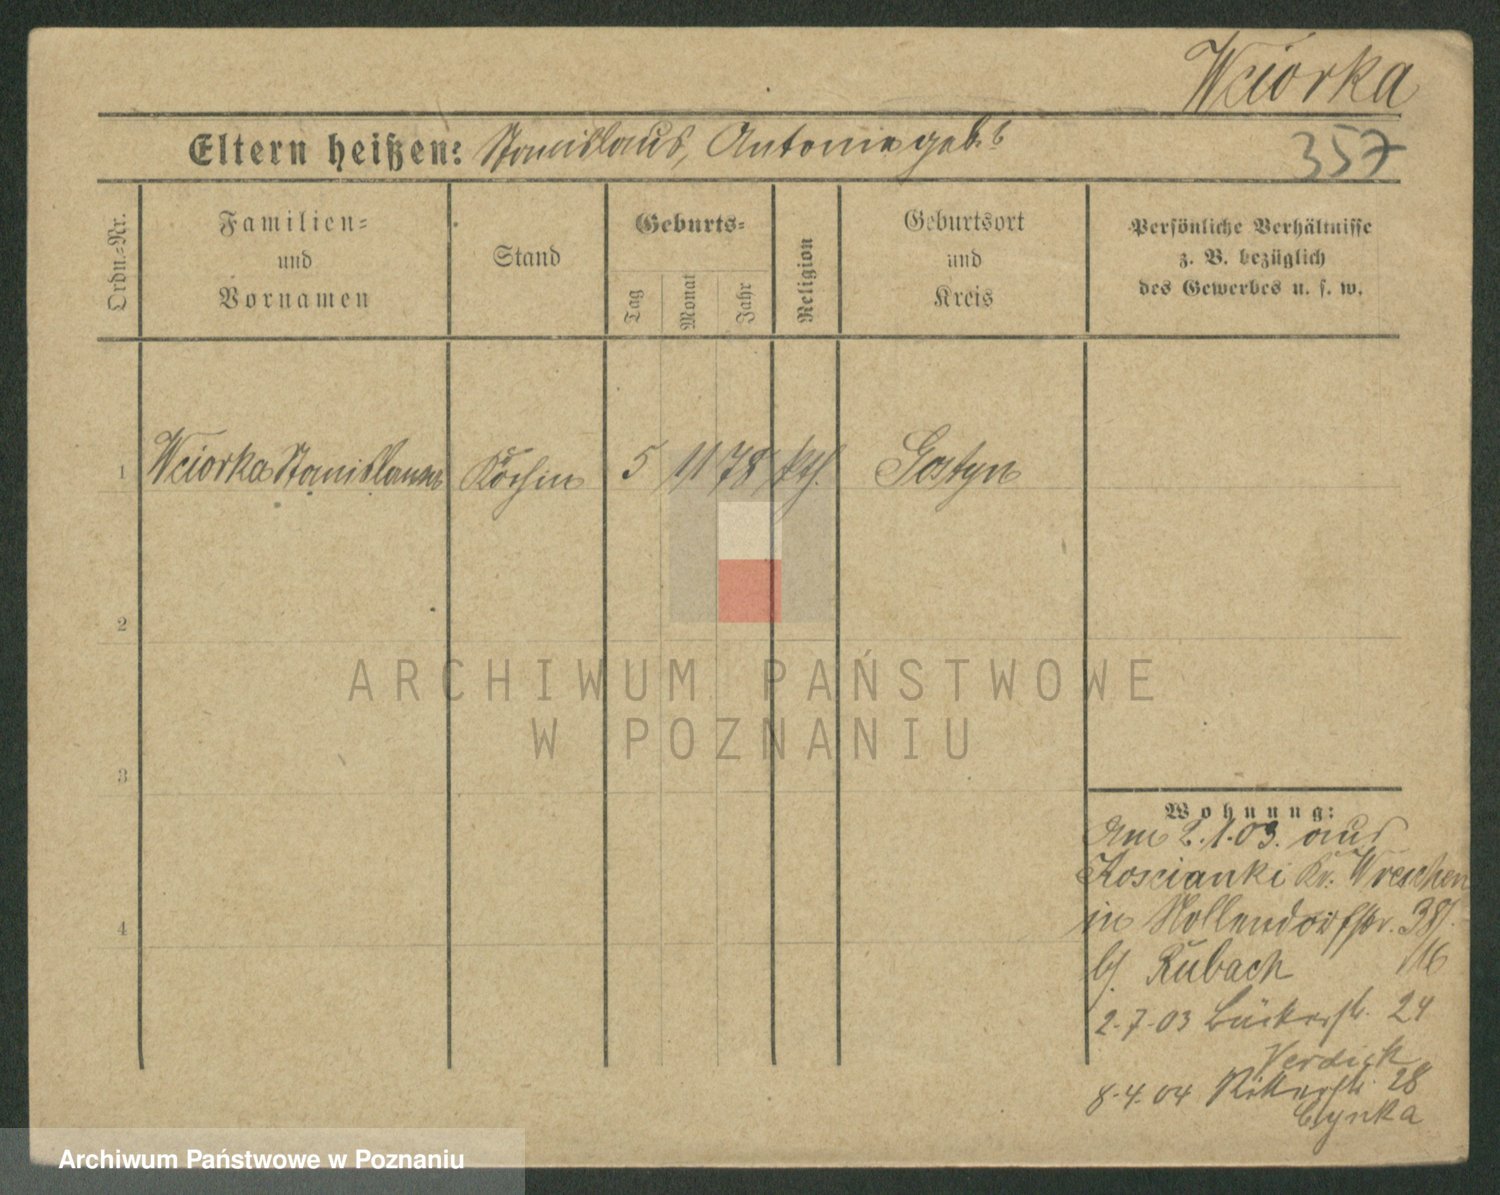 Wciorka
Eltern heißen: Stanislaus, Antonie geb.
357
Ordn.-Nr.
Familien-
und
Vornamen
Stand
Geburts-
Tag
Monat
Jahr
Religion
Geburtsort
und
Kreis
Persönliche Verhältnisse
z. B. bezüglich
des Gewerbes u. s. w.
1 Wciorka Stanislawa Köchin 5 11 78 kth. Gostyn
2
3
4
ARCHIWUM PAŃSTWOWE
W POZNANIU
Wohnung:
Am 2.1.03. aus
Koscianki Kr. Wreschen
in Nollendorfstr. 38/.
b/ Rubach 116
2.7.03 Bäckerstr. 24
Verdick
8.4.04 Ritterstr. 28
Cynka
Archiwum Państwowe w Poznaniu